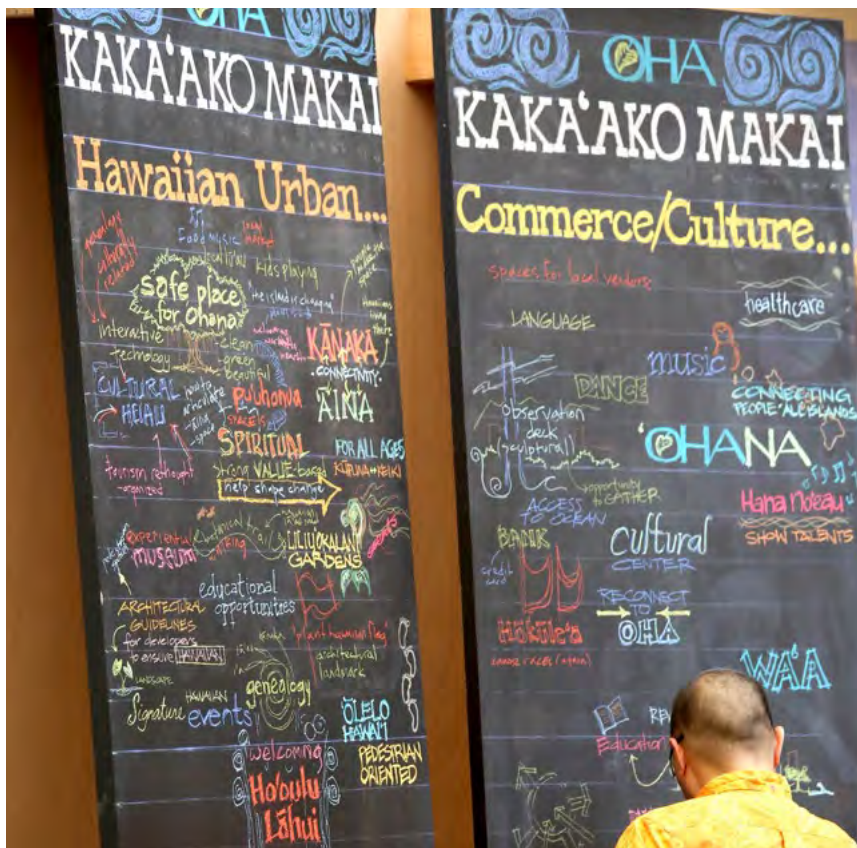 OHA
KAKA'AKO MAKAI
Hawaiian Urban...
culturally
related
Food music
local
market
kids playing
safe place
for Ohana
"the island is changing"
interactive
technology
clean
green
beautiful
KĀNAKA
CONNECTIVITY
'ĀINA
CULTURAL
HEIAU
how to
articulate
puuhonua
SPACE IS
SPIRITUAL
strong VALUE-based
help shape change
FOR ALL AGES
KUPUNA + KEIKI
tourism rethought
-organized
experiential
museum
LILIUOKALANI
GARDENS
educational
opportunities
ARCHITECTURAL
GUIDELINES
for developers
to ensure HAWAIIAN
"plant hawaiian flag"
architectural
landmark
LANDSCAPE
genealogy
Signature HAWAIIAN
events
'ŌLELO
HAWAI'I
PEDESTRIAN
ORIENTED
welcoming
Ho'oulu
Lāhui
OHA
KAKA'AKO MAKAI
Commerce/Culture...
spaces for local vendors
healthcare
LANGUAGE
music
DANCE
CONNECTING
PEOPLE "ALL" ISLANDS
observation
deck
(sculptural)
'OHANA
opportunity
to GATHER
ACCESS
TO OCEAN
Hana Noeau
SHOW TALENTS
BANK
credit
card
cultural
CENTER
RECONNECT
TO
OHA
Hōkūle'a
canoe races (again)
WA'A
Education